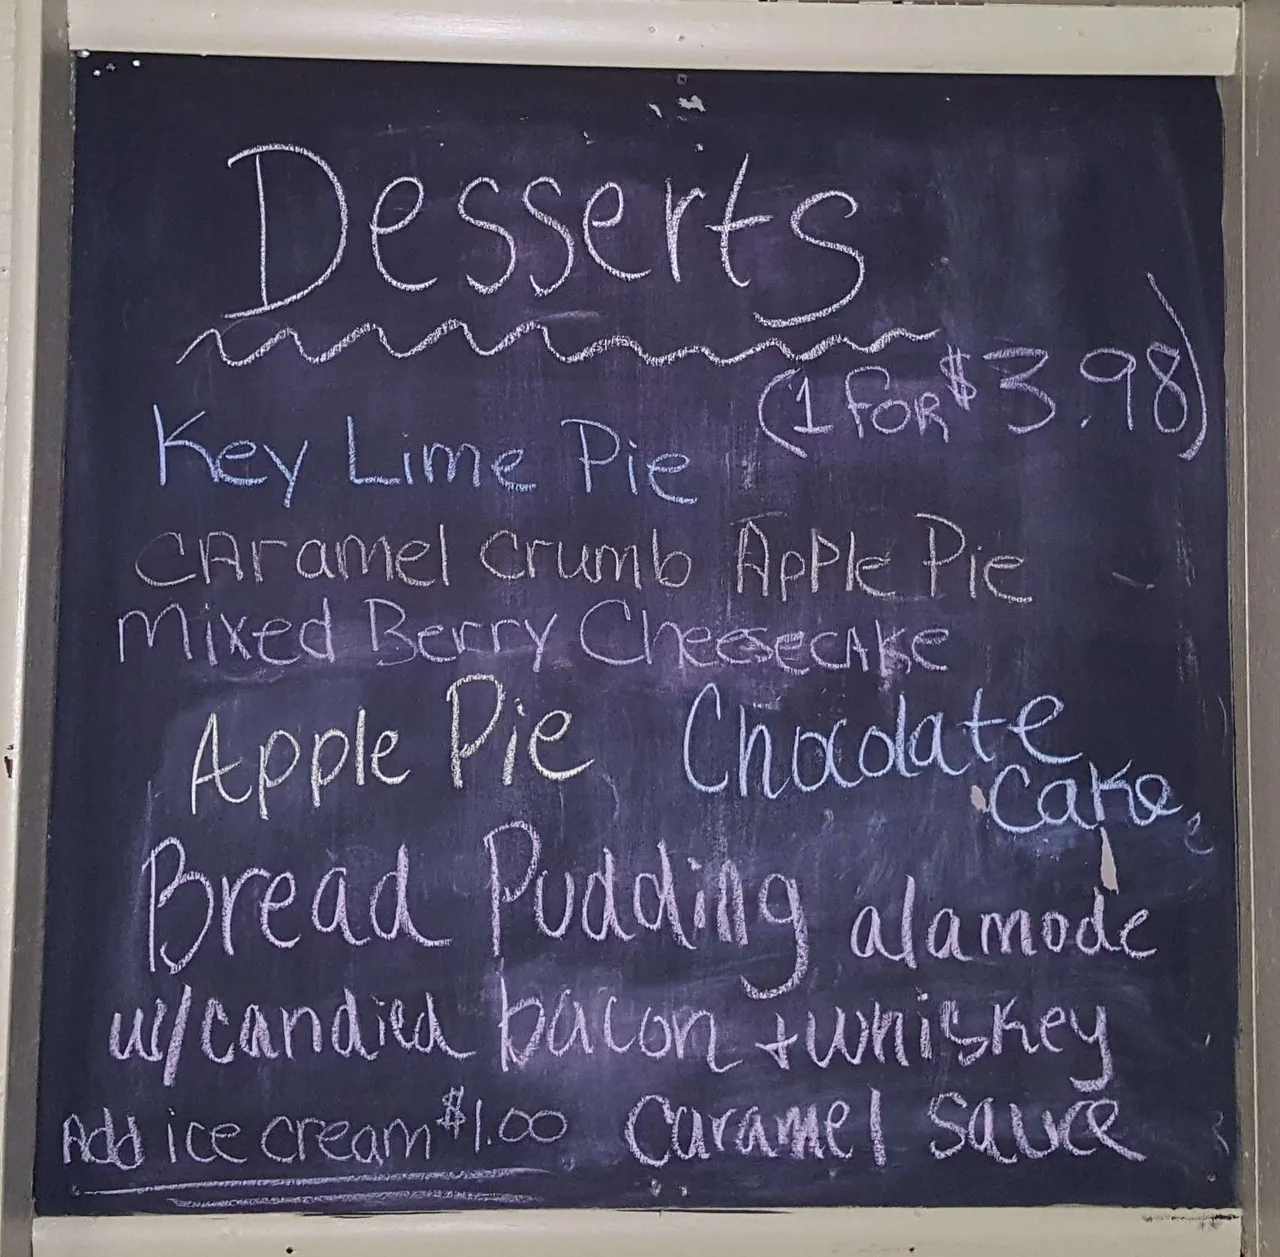 Desserts
(1 FOR $3.98)
Key Lime Pie
CARamel Crumb Apple Pie
Mixed Berry CheesecAke
Apple Pie Chocolate
Cake
Bread Pudding alamode
w/candied bacon + whiskey
Caramel sauce
Add ice cream $1.00